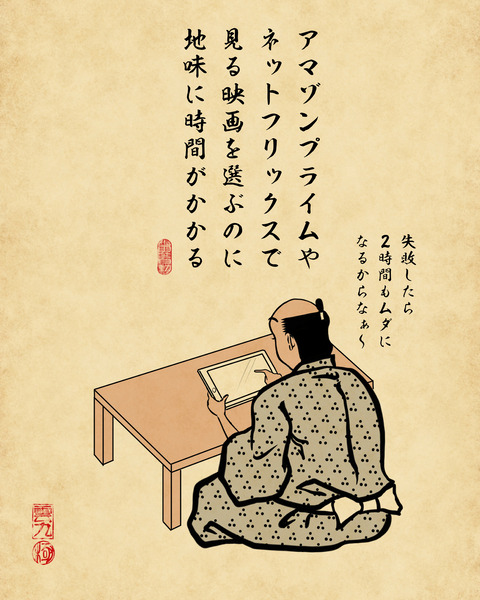 アマゾンプライムや
ネットフリックスで
見る映画を選ぶのに
地味に時間がかかる
失敗したら
2時間もムダに
なるからなぁ〜